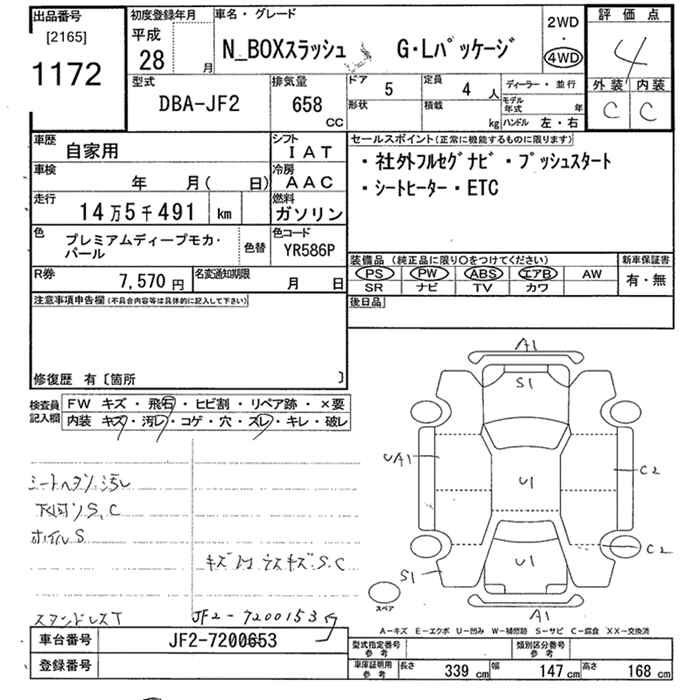 出品番号
[2165]
1172
初度登録年月
平成
28
月
車名・グレード
N_BOXスラッシュ G・Lパッケージ
2WD
・
4WD
評価点
4
外装 内装
C C
型式
DBA-JF2
排気量
658
CC
ドア
5
形状
定員
4 人
積載
kg
ディーラー・並行
モデル年式
年
ハンドル 左・右
車歴
自家用
シフト
IAT
車検
年 月( 日)
冷房
AAC
走行
14万5千491 km
燃料
ガソリン
色
プレミアムディープモカ・
パール
色替
色コード
YR586P
R券
7,570 円
名変通知期限
月 日
セールスポイント(正常に機能するものに限ります)
・社外フルセグナビ・プッシュスタート
・シートヒーター・ETC
装備品(純正品に限り○をつけてください)
PS PW ABS エアB AW
SR ナビ TV カワ
新車保証書
有・無
後日品
注意事項申告欄(不具合内容等は具体的に記入して下さい)
修復歴 有〔箇所 〕
検査員
記入欄
FW キズ・飛石・ヒビ割・リペア跡・×要
内装 キズ・汚レ・コゲ・穴・ズレ・キレ・破レ
S.C
ホイルS
S.C
JF2-7200153
A1
S1
UA1
U1
C2
U1
C2
S1
A1
スペア
A-キズ E-エクボ U-凹み W-補修跡 S-サビ C-腐食 XX-交換済
車台番号
JF2-7200653
登録番号
型式指定番号
参考
類別区分番号
参考
車庫証明用
参考
長さ
339 cm
幅
147 cm
高さ
168 cm